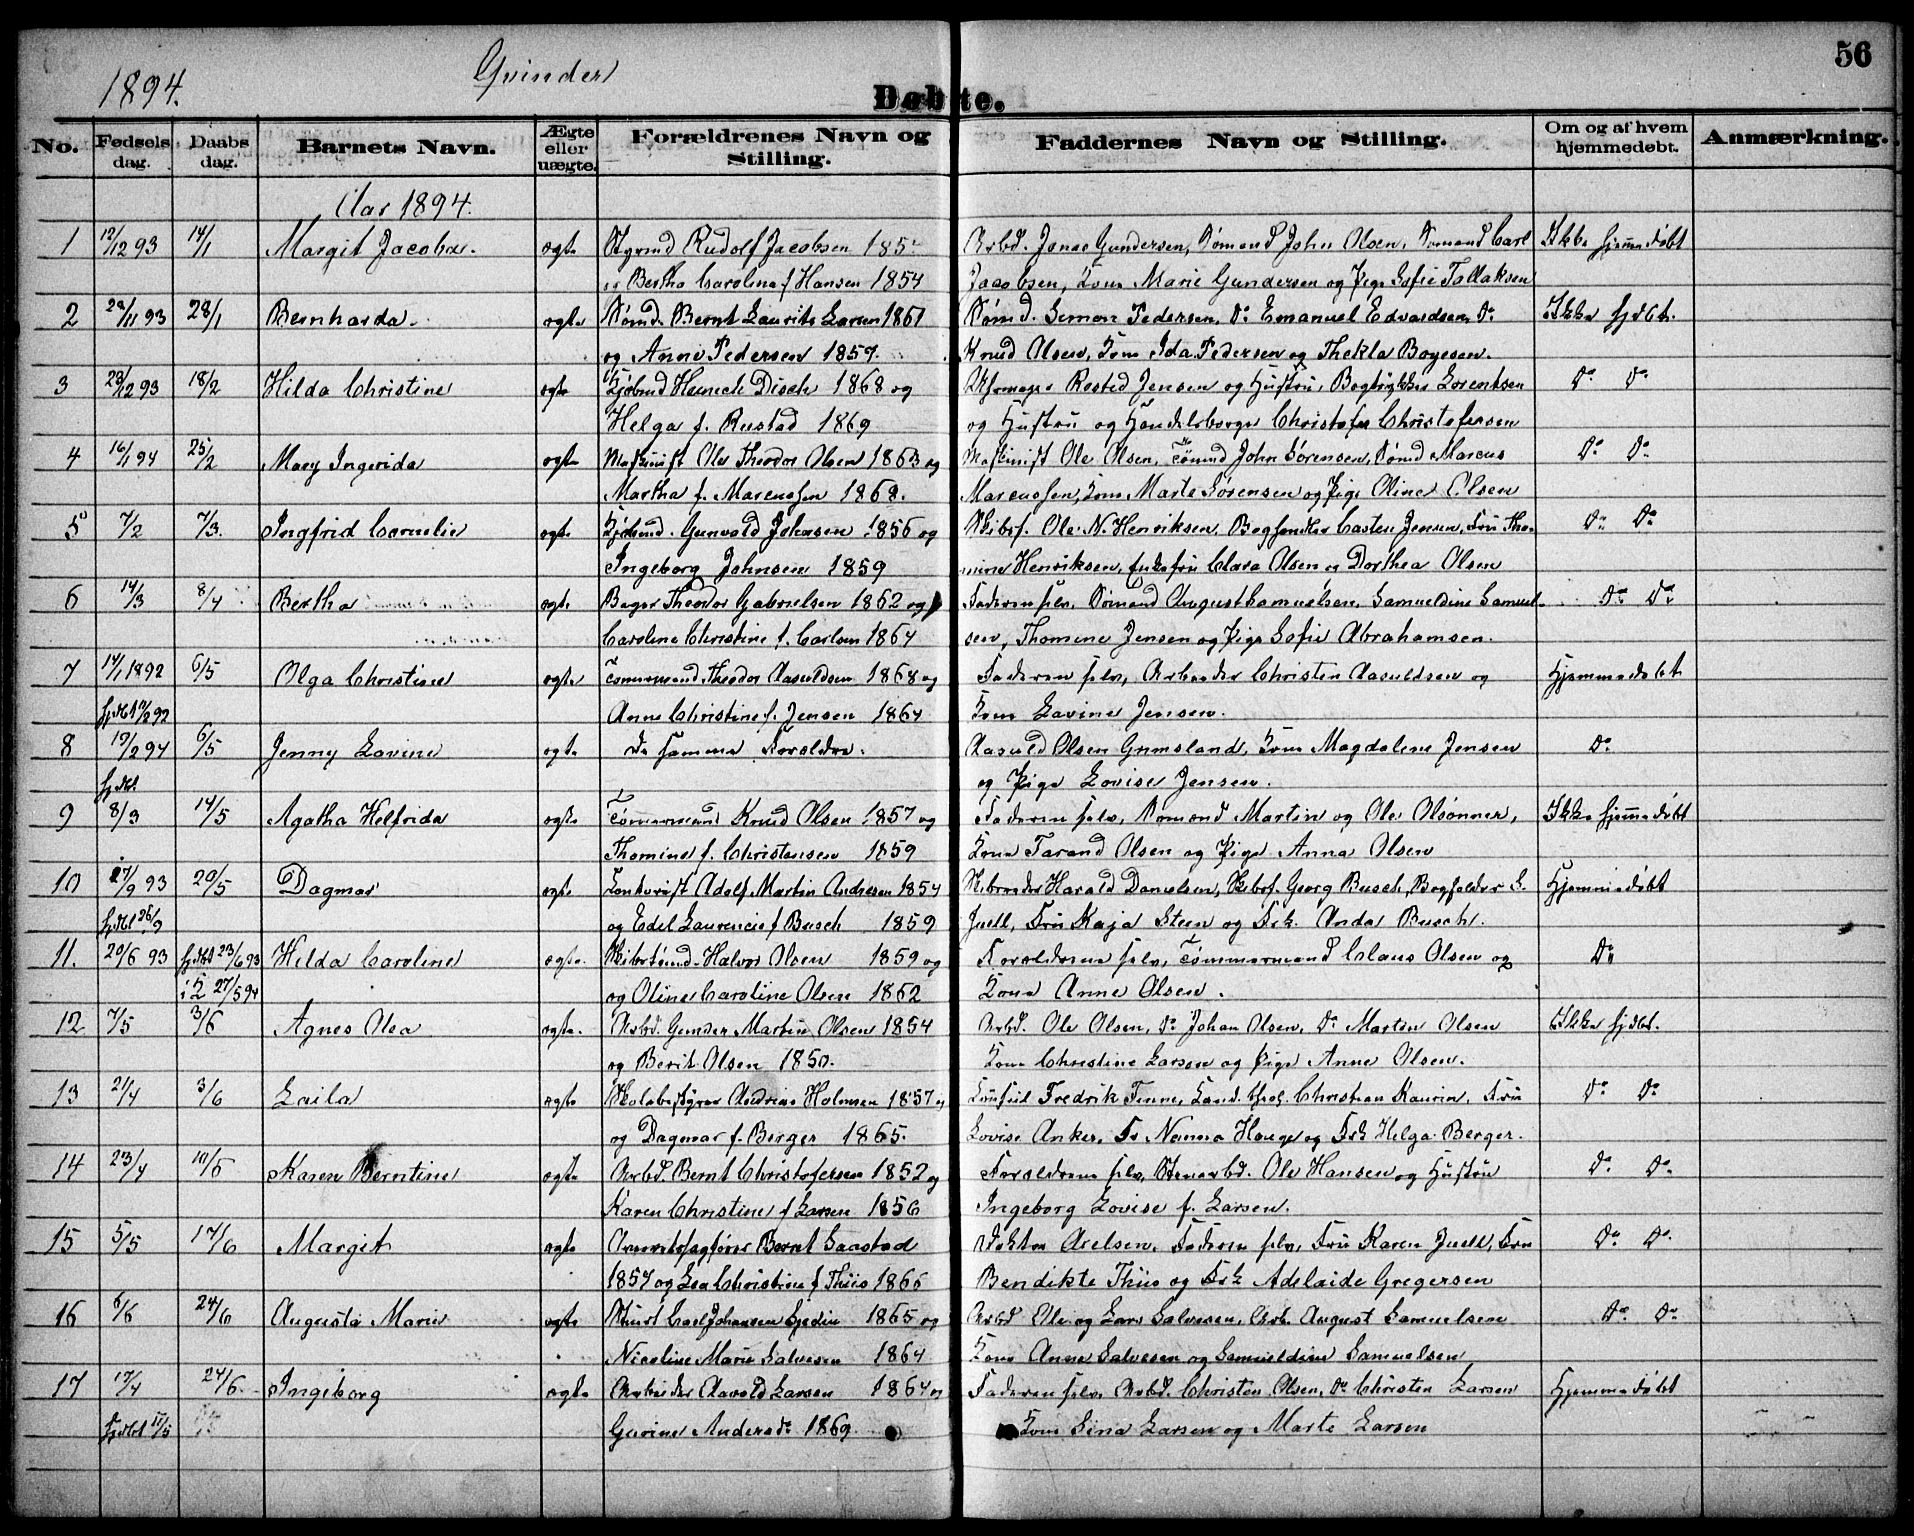 56
1894.
Qvinder
Døbte.
No. Fødsels dag. Daabs dag. Barnets Navn. Ægte eller uægte. Forældrenes Navn og Stilling. Faddernes Navn og Stilling. Om og af hvem hjemmedøbt. Anmærkning.
Aar 1894.
1 12/12 93 14/1 Margit Jacoba. ægte Styrmd Rudolf Jacobsen Arbd. Jonas Gundersen, Sømand John Olsen, Sømand Carl Ikke hjemmedøbt
og Bertha Caroline f Hansen 1854 Jacobsen, Kone Marie Gundersen og Pige Sofie Tallaksen
2 28/11 93 28/1 Bernharda. ægte Sømd. Bernt Laurits Larsen 1861 Sømd. Simon Pedersen, Do Emanuel Edvardsen, Do Ikke hjdbt.
og Anne Pedersen 1857. Knud Olsen, Kone Ida Pedersen og Thekla Boyesen.
3 23/12 93 18/2 Hilda Christine ægte Kjøbmd Heinrich Disch 1868 og Rested Jensen og Hustru, Bogtrykker Lorentsen Do Do
Helga f. Rustad 1869 og Hustru og Handelsborger Christofer Christofersen
4 16/1 94 25/2 Mary Ingerida ægte Maskinist Ole Theodor Olsen 1863 og Maskinist Ole Olsen, Tømmd John Sørensen, Sømd Marcus Do Do
Martha f. Marcussen 1868. Marcussen, Kone Marte Sørensen og Pige Oline Olsen
5 7/2 7/3. Ingfrid Cornelie ægte Kjøbmd. Gunvald Johnsen 1856 og Skibsf. Ole N. Henriksen, Bogholder Casten Jensen, Fru Tho- Do Do
Ingeborg Johnsen 1859 mine Henriksen, Enkefru Clara Olsen og Dorthea Olsen
6 14/3 8/4 Bertha ægte Bager Theodor Gabrielsen 1862 og Faderen selv, Sømand August Samuelsen, Samueldine Samuel- Do Do
Caroline Christine f. Carlsen 1864 sen, Thomine Jensen og Pige Sofie Abrahamsen.
7 14/1 1892 6/5 Olga Christine ægte Tømmermand Theodor Aasuldsen 1868 og Faderen selv, Arbeider Christen Aasuldsen og Hjemmedøbt
hjdbt /2 92 Anne Christine f. Jensen 1864 Kone Lavine Jensen.
8 19/2 94 6/5 Jenny Lovine ægte de samme Forældre. Aasuld Olsen Grimsland, Kone Magdalene Jensen Do
hjdbt. og Pige Lovise Jensen.
9 8/3 14/5 Agatha Helfrida ægte Tømmermand Knud Olsen 1857 og Faderen selv, Sømand Martin og Ole Olsønner, Ikke hjemmedøbt
Thomine f. Christensen 1859 Kone Tarand Olsen og Pige Anna Olsen
10 27/9 93 20/5 Dagmar ægte Adolf Martin Andresen 1854 Skibsreder Harald Danielsen, Skibsf. Georg Busch, Bogholder S. Hjemmedøbt
hjdbt 26/9 og Edel Laurencie f Busch 1859 Juell, Fru Kaja Steen og Frk. Anda Busch.
11. 20/6 93 hjdbt 23/6 93 Hilda Caroline ægte. Skibstømd. Halvor Olsen 1859 og Forældrene selv, Tømmermand Claus Olsen og Do
i K 27/5 94 og Oline Caroline Olsen 1862 Kone Anne Olsen.
12 7/5 3/6 Agnes Olea ægte. Arbd. Gunder Martin Olsen 1854 Arbd. Ole Olsen, Do Johan Olsen, Do Marten Olsen Ikke hjdbt.
og Berit Olsen 1850. Kone Christine Larsen og Pige Anne Olsen.
13 21/4 3/6 Laila ægte Skolebestyrer Andreas Holmsen 1857 og Fredrik Finne, Cand. theol. Christian Kaurin, Fru Do Do
og Dagmar f. Berger 1865. Lovise Anker, Fr Nanna Hauge og Frk Helga Berger.
14 23/4 10/6 Karen Berntine ægte Arbd. Bernt Christofersen 1852 og Forældrene selv, Stenarbd. Ole Hansen og Hustru Do Do
Karen Christine f Larsen 1856 Ingeborg Lovise f. Larsen.
15 5/5 17/6 Margit ægte Overretssagfører Bernt Saastad Doktor Axelsen, Faderen selv, Fru Karen Juell, Fru Do Do
1857 og Lea Christine f Thiis 1866 Bendikte Thiis og Frk Adelaide Gregersen
16 6/6 24/6 Augusta Marie ægte Carl Johansen Sjedin 1865 og Arbd Ole og Lars Salvesen, Arb. August Samuelsen Do Do
Nicoline Marie Salvesen 1864 Kone Anne Salvesen og Samueldine Samuelsen
17 17/4 24/6. Ingeborg ægte Arbeider Aavold Larsen 1864 og Faderen selv, Arbd. Christen Olsen, Do Christen Larsen Hjemmedøbt
hjdbt 11/5 Gurine Andersdr 1869. Kone Sina Larsen og Marte Larsen